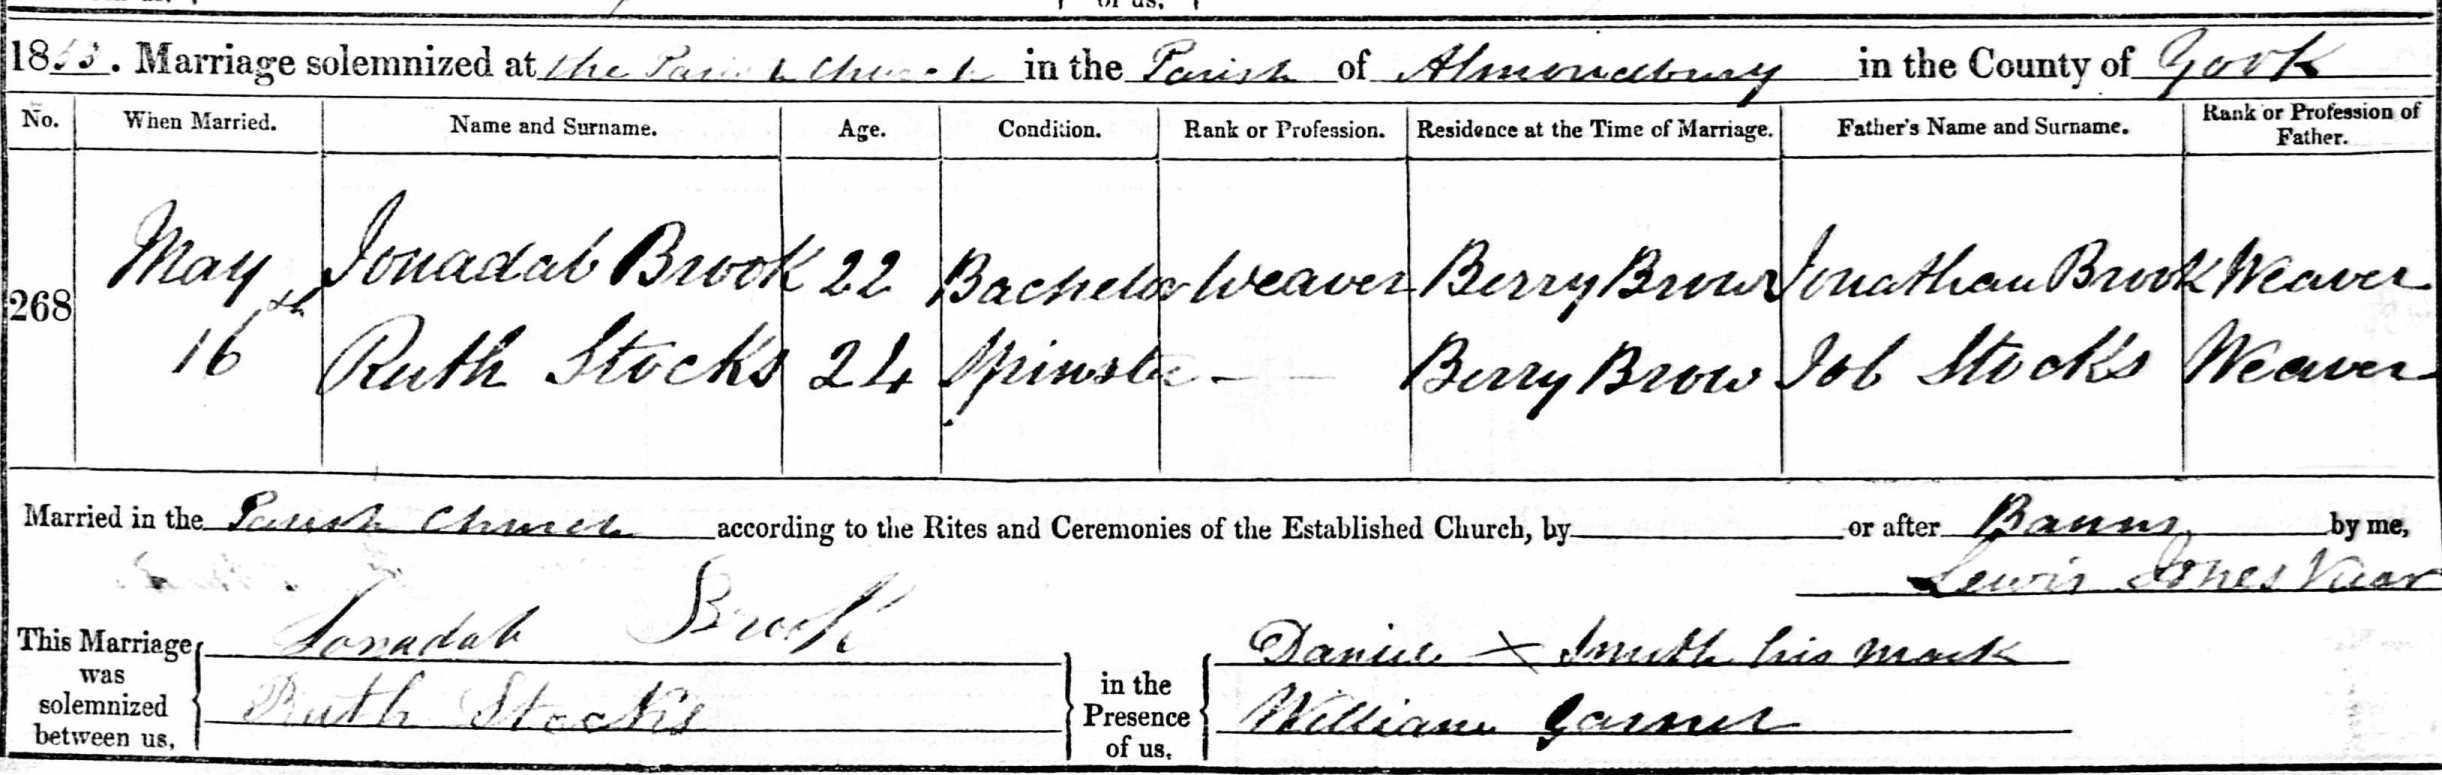 of us,
18 . Marriage solemnized at the Parish Church in the Parish of Almondbury in the County of York
No. When Married. Name and Surname. Age. Condition. Rank or Profession. Residence at the Time of Marriage. Father's Name and Surname. Rank or Profession of Father.
268 May 16th Jonadab Brook 22 Bachelor Weaver Berry Brow Jonathan Brook Weaver
Ruth Stocks 24 Spinster - Berry Brow Job Stocks Weaver
Married in the Parish Church according to the Rites and Ceremonies of the Established Church, by or after Banns by me,
Lewis Jones Vicar
This Marriage was solemnized between us, Jonadab Brook
Ruth Stocks
in the Presence of us, Daniel X Smith his mark
William Garner